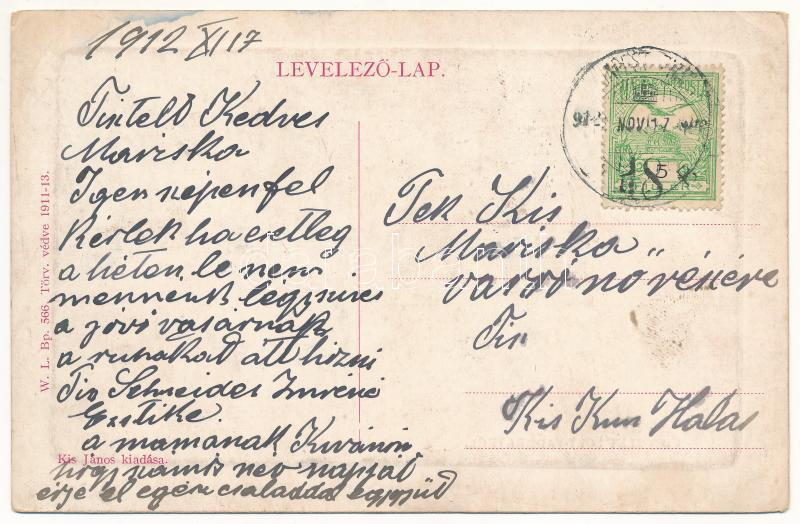 1912 XI 17
LEVELEZŐ-LAP.
Tistelt Kedves
Mariska
Igen szépen fel
kérlek ha esetleg
a héten le nem
mennénk légy szives
a jövő vasárnap
a ruhákat átt hozni
Tiv Schneider Imréné
Esztike.
a mamának Kivánom
hogy számos nev napját
érje el egész családdal együtt
W. L. Bp. 566 Törv. védve 1911-13.
Kis János kiadása.
NOV 17
5
18
Tek Kis
Mariska
varró növésére
Kis Kun Halas